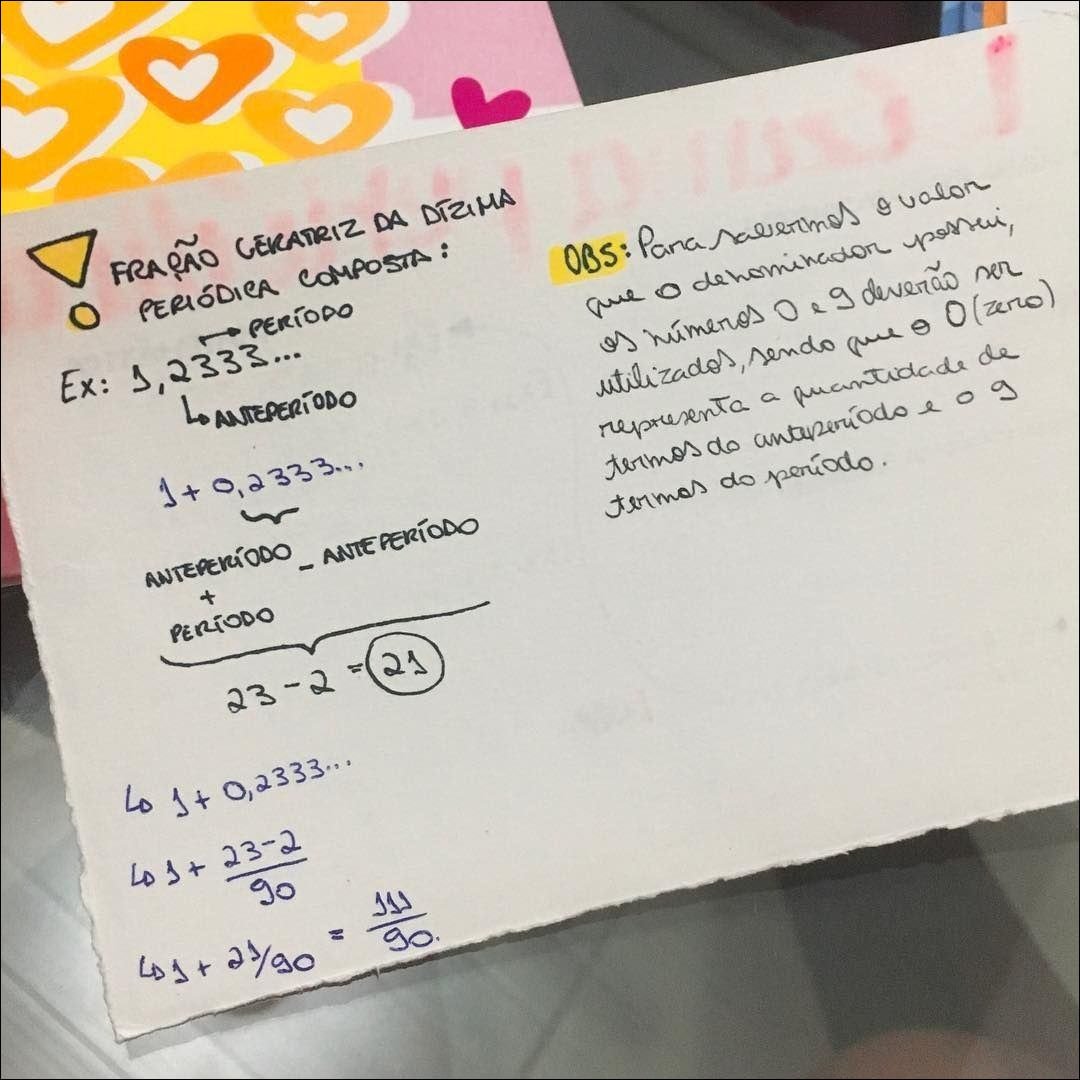 FRAÇÃO GERATRIZ DA DÍZIMA
PERIÓDICA COMPOSTA:
↦ PERÍODO
Ex: 1,2333...
↳ ANTEPERÍODO
1 + 0,2333...
ANTEPERÍODO - ANTEPERÍODO
+
PERÍODO
23 - 2 = 21
↳ 1 + 0,2333...
↳ 1 + 23-2
90
↳ 1 + 21/90 = 111
90.
OBS: Para sabermos o valor
que o denominador possui,
os números 0 e 9 deverão ser
utilizados, sendo que o 0 (zero)
representa a quantidade de
termos do anteperíodo e o 9
termos do período.